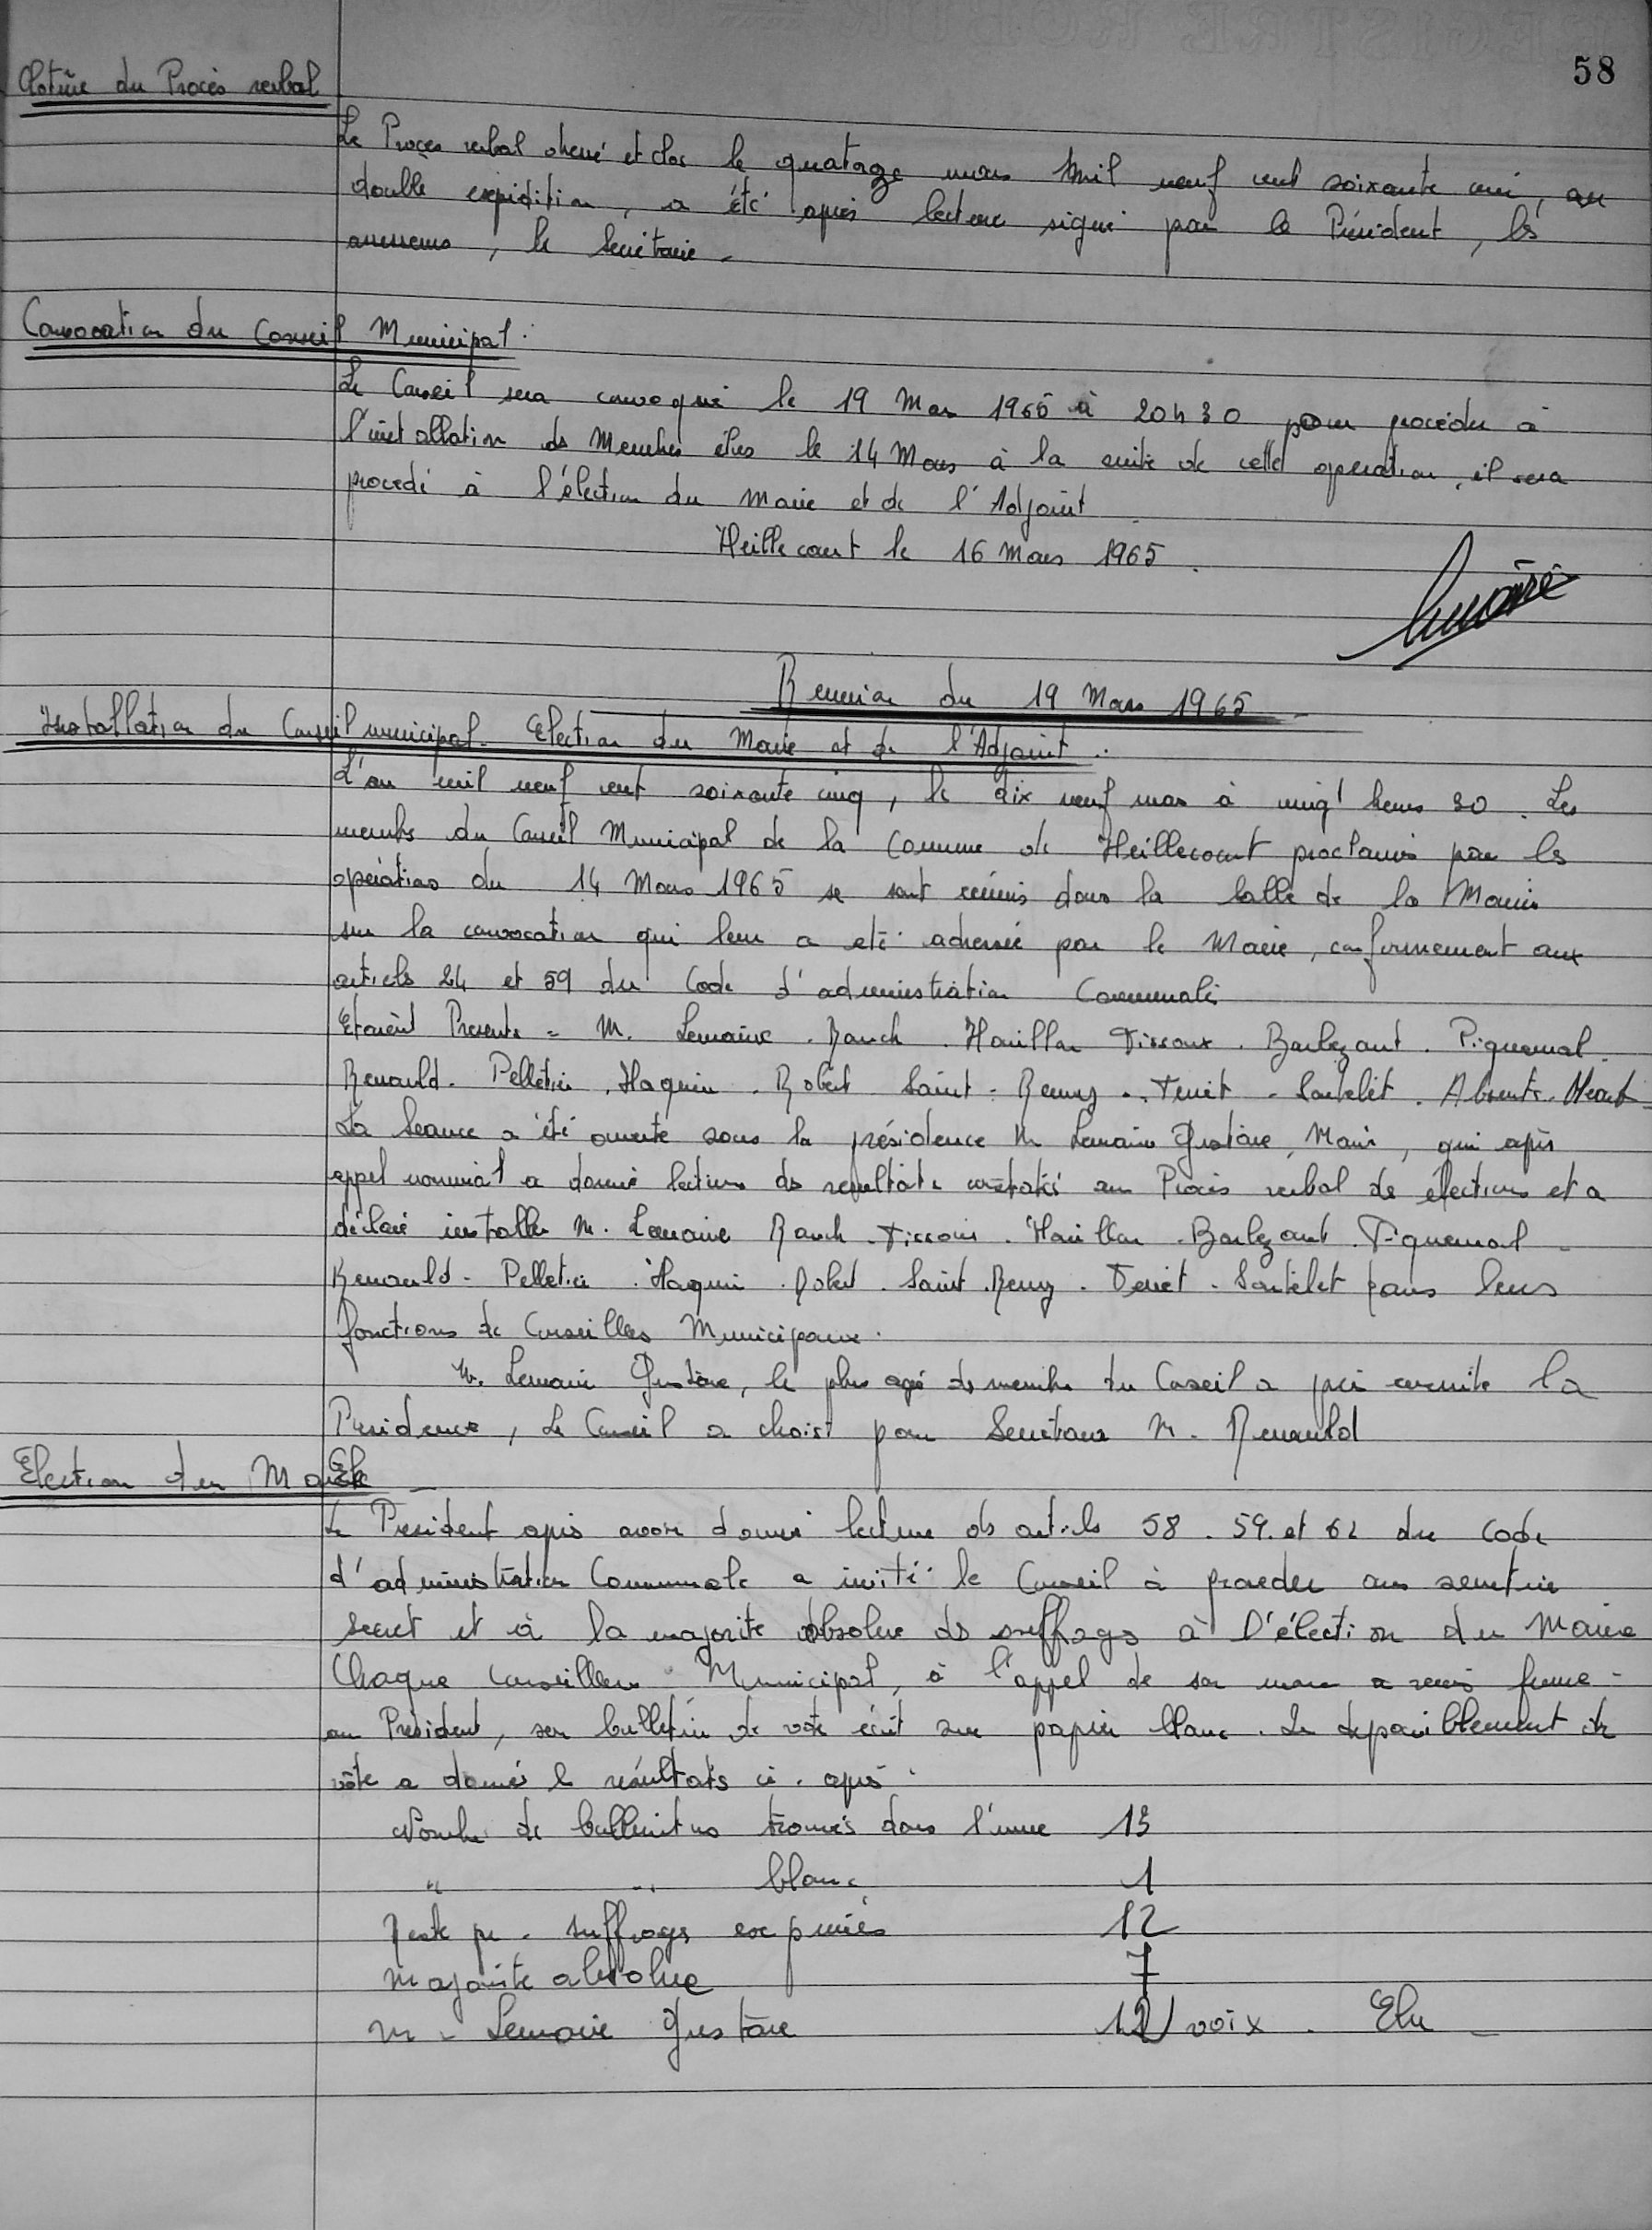 58
Clôture du Procès verbal
Le Procès verbal dressé et clos le quatorze mars mil neuf cent soixante cinq, en
double expédition, a été après lecture signé par le Président, les
assesseurs, le Secrétaire.
Convocation du Conseil Municipal.
Le Conseil sera convoqué le 19 Mars 1965 à 20h30 pour procéder à
l'installation des Membres élus le 14 Mars à la suite de cette opération, il sera
procédé à l'élection du Maire et de l'Adjoint
Heillecourt le 16 Mars 1965.
Lemoine
Reunion du 19 Mars 1965
Installation du Conseil municipal. Election du Maire et de l'Adjoint.
L'an mil neuf cent soixante cinq, le dix neuf mars à vingt heures 30. Les
membres du Conseil Municipal de la Commune de Heillecourt proclamés par les
opérations du 14 Mars 1965 se sont réunis dans la Salle de la Mairie
sur la convocation qui leur a été adressée par le Maire, conformément aux
articles 24 et 59 du Code d'administration Communale
Etaient Presents = M. Lemoine. Rauch. Houillon Tissoux. Barbezant. Piquemal.
Renauld. Pelletier. Haquin. Robert Saint-Remy. Tenet. Sartelet. Absents.
La Séance a été ouverte sous la présidence M Lemoine Gustave, Maire, qui après
appel nominal a donné lecture des resultats constatés au Procès verbal des élections et a
déclaré installer M. Lemoine Rauch. Tissoux. Houillon. Barbezant. Piquemal -
Renauld - Pelletier. Haquin. Robert. Saint Remy. Tenet. Sartelet dans leurs
fonctions de Conseillers Municipaux.
M. Lemoine Gustave, le plus agé des membres du Conseil a pris ensuite la
Presidence, Le Conseil a choisi pour Secrétaire M. Renauld
Election du Maire
Le President après avoir donné lecture des articles 58. 59. et 62 du Code
d'administration Communale a invité le Conseil à proceder au scrutin
secret et à la majorité absolue des suffrages à l'élection du Maire
Chaque Conseiller Municipal, à l'appel de son nom a remis fermé -
au Président, son bulletin de vote écrit sur papier blanc. Le depouillement du
vote a donné les résultats ci. après.
Nombre de bulletins trouvés dans l'urne 13
" " blanc 1
Reste pr. suffrages exprimés 12
Majorité absolue 7
M. Lemoine Gustave 12 voix. Elu -